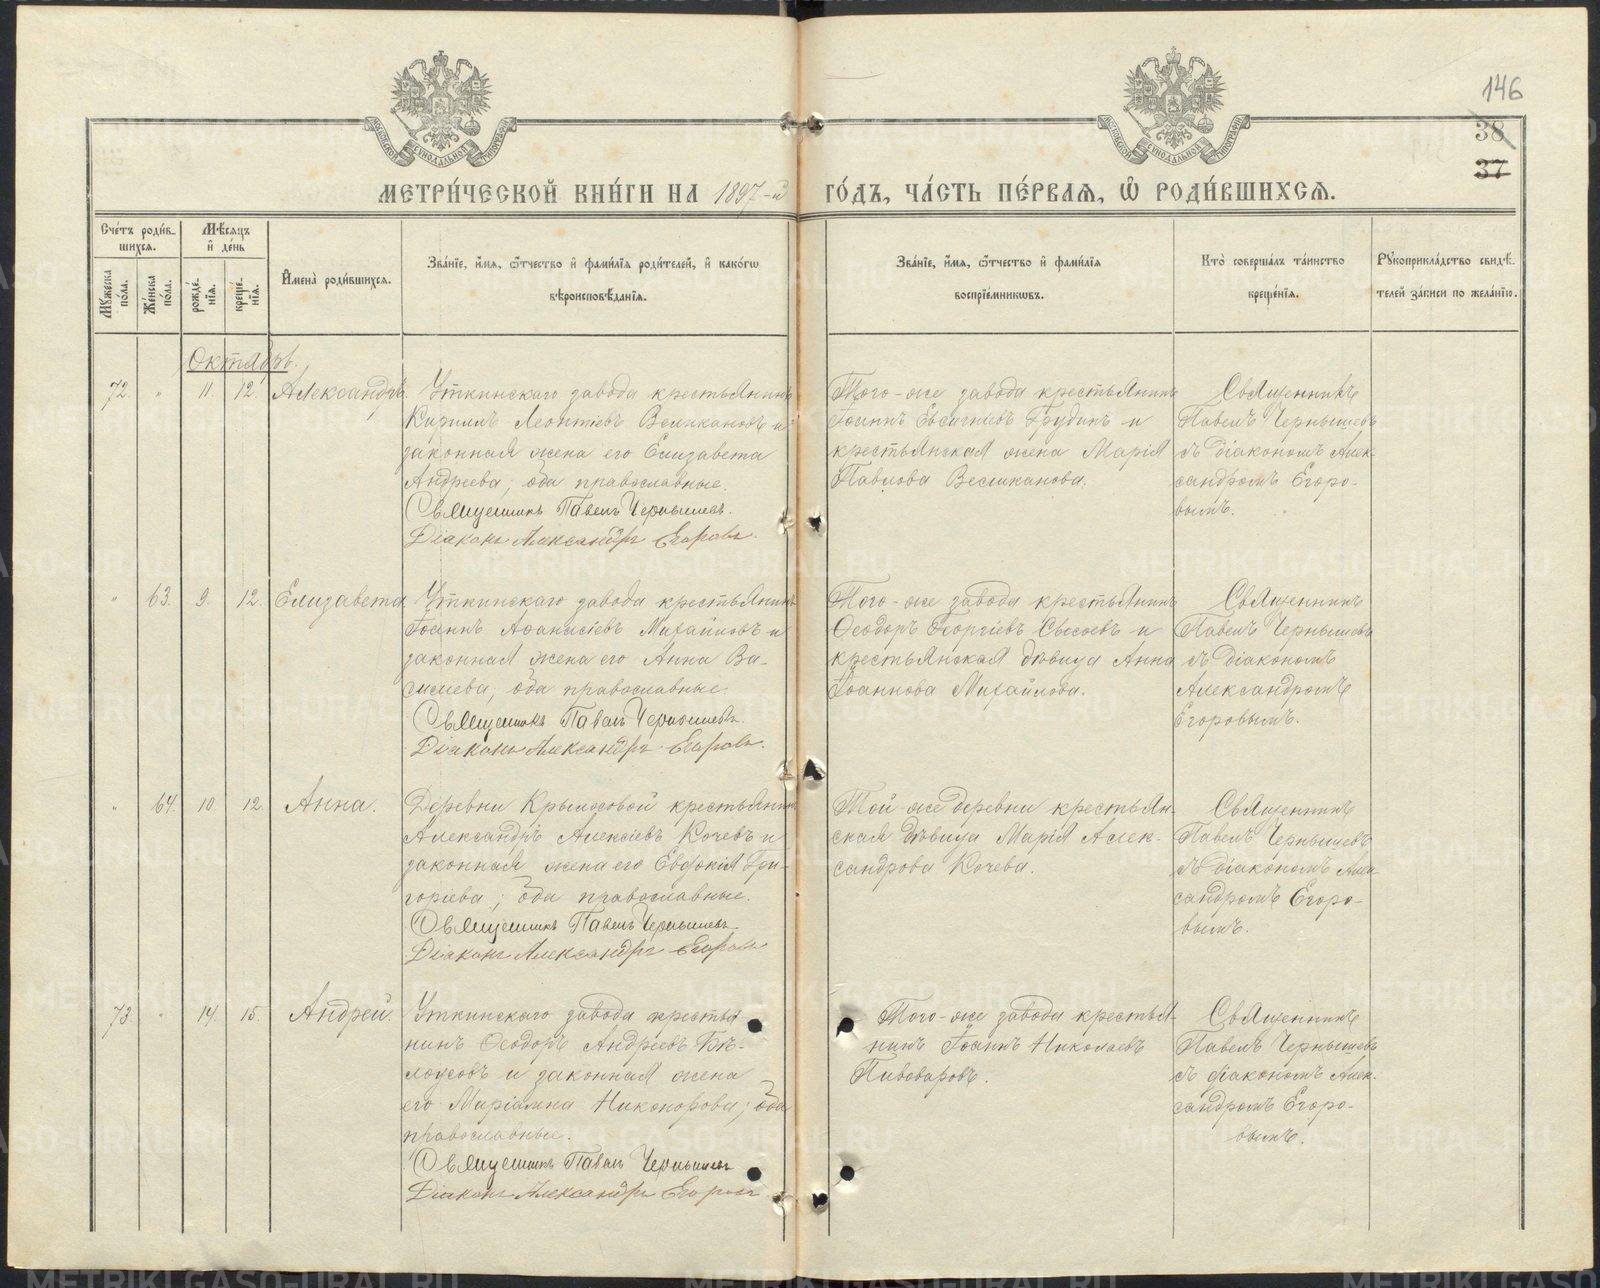 146
38
37
МЕТРИ́ЧЕСКОЙ КНИ́ГИ НА 1897-й ГО́ДЪ, ЧА́СТЬ ПЕ́РВАЯ, Ѽ РОДИ́ВШИХСЯ.
Сче́тъ роди́в-
шихся.
Мѣсяцъ
и҆ де́нь
Мꙋ́жеска
по́ла.
Же́нска
по́ла.
рожде́-
нїя.
креще́-
нїя.
И҆мена̀ роди́вшихся.
Зва́нїе, и҆́мя, ѻ҆́тчество и҆ фами́лїя роди́телей, и҆ како́гѡ
вѣроисповѣ́данїя.
Зва́нїе, и҆́мя, ѻ҆́тчество и҆ фами́лїя
воспрїе́мникѡвъ.
Кто̀ соверша́лъ та́инство
креще́нїя.
Рꙋкоприкла́дство свидѣ́-
телей за́писи по жела́нїю.
Октябрь.
72. " 11 12. Александръ.
Уткинскаго завода крестьянинъ
Кириллъ Леонтіевъ Великановъ и
законная жена его Елизавета
Андреева; оба православные.
Священникъ Павелъ Чернышевъ.
Діаконъ Александръ Егоровъ.
Того-же завода крестьянинъ
Іоаннъ Евсигніевъ Грудинъ и
крестьянская жена Марія
Павлова Великанова.
Священникъ
Павелъ Чернышевъ
съ діакономъ Алек-
сандромъ Егоро-
вымъ.
" 63. 9. 12. Елизавета
Уткинскаго завода крестьянинъ
Іоаннъ Аѳанасіевъ Михайловъ и
законная жена его Анна Ва-
силіева, оба православные.
Священникъ Павелъ Чернышевъ.
Діаконъ Александръ Егоровъ.
Того-же завода крестьянинъ
Ѳеодоръ Георгіевъ и
крестьянская дѣвица Анна
Іоаннова Михайлова.
Священникъ
Павелъ Чернышевъ
съ діакономъ
Александромъ
Егоровымъ.
" 64. 10 12. Анна.
Деревни Крылосовой крестьянинъ
Александръ Алексіевъ Кочевъ и
законная жена его Евдокія Гри-
горіева; оба православные.
Священникъ Павелъ Чернышевъ
Діаконъ Александръ Егоровъ
Той-же деревни крестьян-
ская дѣвица Марія Алек-
сандрова Кочева.
Священникъ
Павелъ Чернышевъ
съ діакономъ Алек
сандромъ Егоро-
вымъ.
73. " 14. 15. Андрей.
Уткинскаго завода крестья
нинъ Ѳеодоръ Андреевъ Бѣ-
лоусовъ и законная жена
его Маріамна Никонорова; оба
православные.
Священникъ Павелъ Чернышевъ
Діаконъ Александръ Егоровъ
Того-же завода крестья-
нинъ Іоаннъ Николаевъ
Пивоваровъ.
Священникъ
Павелъ Чернышевъ
съ діакономъ Алек-
сандромъ Егоро-
вымъ.